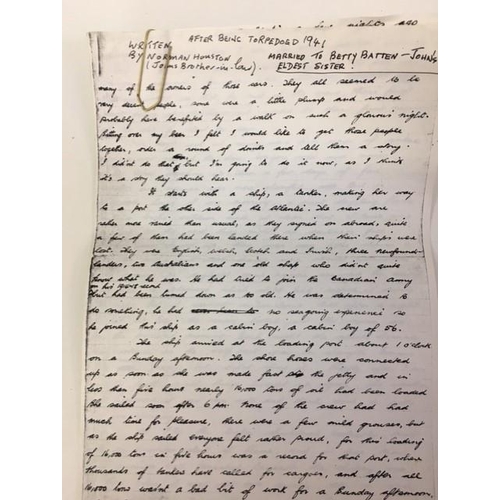 nights ago
WRITTEN AFTER BEING TORPEDOED 1941
BY NORMAN HOUSTON MARRIED TO BETTY BATTEN - JOHN'S
(John's Brother-in-law). ELDEST SISTER.
many of the owners of those cars. They all seemed to be
very people, some were a little plump and would
probably have benefited by a walk on such a glorious night.
Sitting over my beer I felt I would like to get those people
together, order a round of drinks and tell them a story.
I didn't do that, but I'm going to do it now, as I think
it's a story they should hear.
It starts with a ship, a tanker, making her way
to a port the other side of the Atlantic. The crew are
rather more mixed than usual, as they signed on abroad, quite
a few of them had been landed there when their ships were
lost. They were English, Welsh, Scotch and Irish, three Newfound-
landers, two Australians and one old chap who didn't quite
know what he was. He had tried to join the Canadian Army
on his record
but had been turned down as too old. He was determined to
do something, he had no seagoing experience so
he joined this ship as a cabin boy, a cabin boy of 56.
The ship arrived at the loading port about 1 o'clock
on a Sunday afternoon. The shore hoses were connected
up as soon as she was made fast the jetty and in
less than five hours nearly 16,000 tons of oil had been loaded
She sailed soon after 6 pm. None of the crew had had
much time for pleasure, there were a few mild grouses, but
as the ship sailed everyone felt rather proud, for this loading
of 16,000 tons in five hours was a record for that port, where
thousands of tankers have called for cargoes, and after all
16,000 tons wasn't a bad bit of work for a Sunday afternoon.